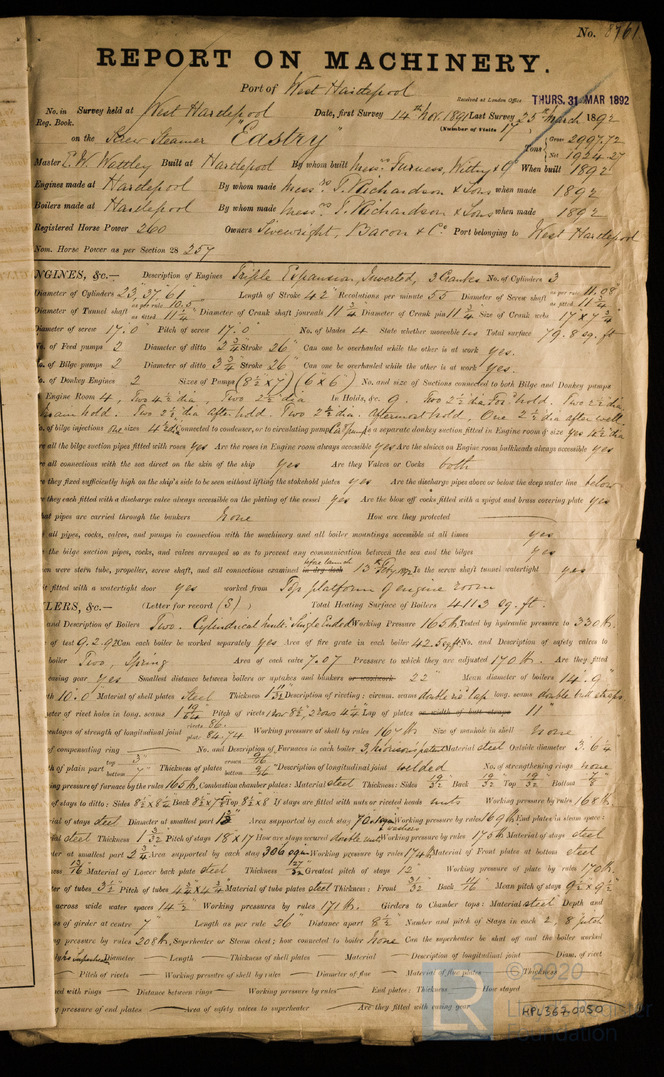 No. 8761
REPORT ON MACHINERY.
Port of West Hartlepool
Received at London Office THURS. 31 MAR 1892
No. in Reg. Book. Survey held at West Hartlepool Date, first Survey 14th Nov. 1891 Last Survey 25th March 1892
(Number of Visits 17)
on the Screw Steamer "Eastry" Tons Gross 2997.72 Net 1924.27
Master E. W. Wattley Built at Hartlepool By whom built Messrs Furness, Withy & Co When built 1892
Engines made at Hartlepool By whom made Messrs T. Richardson & Sons when made 1892
Boilers made at Hartlepool By whom made Messrs T. Richardson & Sons when made 1892
Registered Horse Power 260 Owners Sivewright, Bacon & Co Port belonging to West Hartlepool
Nom. Horse Power as per Section 28 257
NGINES, &c.— Description of Engines Triple Expansion, Inverted, 3 Cranks No. of Cylinders 3
Diameter of Cylinders 23", 37", 61" Length of Stroke 42" Revolutions per minute 55 Diameter of Screw shaft as per rule 11.08 as fitted 11 3/4
Diameter of Tunnel shaft as per rule 10.5 as fitted 11 1/4" Diameter of Crank shaft journals 11 3/4 Diameter of Crank pin 11 3/4 Size of Crank webs 17" x 7 3/4"
Diameter of screw 17.0" Pitch of screw 17.0" No. of blades 4 State whether moveable Total surface 79.8 sq. ft
No. of Feed pumps 2 Diameter of ditto 3 3/4 Stroke 26" Can one be overhauled while the other is at work yes.
No. of Bilge pumps 2 Diameter of ditto 3 3/4 Stroke 26" Can one be overhauled while the other is at work yes.
No. of Donkey Engines 2 Sizes of Pumps (8 1/2 x 7) (6 x 6) No. and size of Suctions connected to both Bilge and Donkey pumps
Engine Room 4, Two 2 1/2 dia In Holds, &c. 9. Two 2 1/2 dia Fore hold. Two 2 1/2 dia
main hold. Two 2 1/2 dia after hold. Two 2 1/2 dia. aftermost hold, One 2 1/2 dia after well.
No. of bilge injections One sizes 4 1/2 dia Connected to condenser, or to circulating pump Cir. pump Is a separate donkey suction fitted in Engine room & size yes 4 1/2 dia
re all the bilge suction pipes fitted with roses yes Are the roses in Engine room always accessible yes Are the sluices on Engine room bulkheads always accessible yes
re all connections with the sea direct on the skin of the ship yes Are they Valves or Cocks both
re they fixed sufficiently high on the ship's side to be seen without lifting the stokehold plates yes Are the discharge pipes above or below the deep water line below
re they each fitted with a discharge valve always accessible on the plating of the vessel yes Are the blow off cocks fitted with a spigot and brass covering plate yes
at pipes are carried through the bunkers None How are they protected
all pipes, cocks, valves, and pumps in connection with the machinery and all boiler mountings accessible at all times yes
the bilge suction pipes, cocks, and valves arranged so as to prevent any communication between the sea and the bilges yes
en were stern tube, propeller, screw shaft, and all connections examined in dry dock before launch 13th Feby. 1892 Is the screw shaft tunnel watertight yes
it fitted with a watertight door yes worked from Top platform of engine room
LERS, &c.— (Letter for record (S)) Total Heating Surface of Boilers 4113 sq. ft.
and Description of Boilers Two. Cylindrical multi Single Ended Working Pressure 165 lb Tested by hydraulic pressure to 330 lb.
of test 9.2.92 Can each boiler be worked separately yes Area of fire grate in each boiler 42.5 sq ft No. and Description of safety valves to
boiler Two, Spring Area of each valve 7.07 Pressure to which they are adjusted 170 lb. Are they fitted
easing gear yes Smallest distance between boilers or uptakes and bunkers or woodwork 22" Mean diameter of boilers 14.9"
th 10.0 Material of shell plates Steel Thickness 1 Description of riveting: circum. seams double riv. lap long. seams double butt straps
eter of rivet holes in long. seams Pitch of rivets Lap of plates or width of butt straps 11"
centages of strength of longitudinal joint rivets 86. plate 84.74 Working pressure of shell by rules 167 lb Size of manhole in shell none
of compensating ring No. and Description of Furnaces in each boiler 3, Material steel Outside diameter 3.6
th of plain part top 3" bottom 7" Thickness of plates crown bottom Description of longitudinal joint welded No. of strengthening rings none
ing pressure of furnace by the rules 165 lb. Combustion chamber plates: Material steel Thickness: Sides 19/32 Back 19/32 Top 19/32 Bottom 7/8
of stays to ditto: Sides 8 1/2 x 8 1/2 Back Top 8 1/2 x 8 If stays are fitted with nuts or riveted heads nuts Working pressure by rules 168 lb.
ial of stays steel Diameter at smallest part Area supported by each stay Working pressure by rules 169 lb End plates in steam space:
ial steel Thickness 1 3/32 Pitch of stays 18" x 17" How are stays secured double nuts & washers Working pressure by rules 175 lb Material of stays steel
er at smallest part 2 3/4 Area supported by each stay 306 sq in Working pressure by rules 174 lb Material of Front plates at bottom steel
ess Material of Lower back plate steel Thickness 27/32 Greatest pitch of stays 12" Working pressure of plate by rules 170 lb.
er of tubes 3 1/2 Pitch of tubes 4 3/4 x 4 3/4 Material of tube plates steel Thickness: Front Back Mean pitch of stays 9 1/2 x 9 1/2
across wide water spaces 14 1/2 Working pressures by rules 171 lb. Girders to Chamber tops: Material steel Depth and
ss of girder at centre 7 Length as per rule 26" Distance apart 8 1/2" Number and pitch of Stays in each 2, 8 pitch
g pressure by rules 208 lb. Superheater or Steam chest; how connected to boiler None Can the superheater be shut off and the boiler worked
Diameter Length Thickness of shell plates Material Description of longitudinal joint Diam. of rivet
Pitch of rivets Working pressure of shell by rules Diameter of flue Material of flue plates Thickness
ned with rings Distance between rings Working pressure by rules End plates: Thickness How stayed
g pressure of end plates Area of safety valves to superheater Are they fitted with easing gear
© 2020
Lloyd's Register
Foundation
HPL367-0050